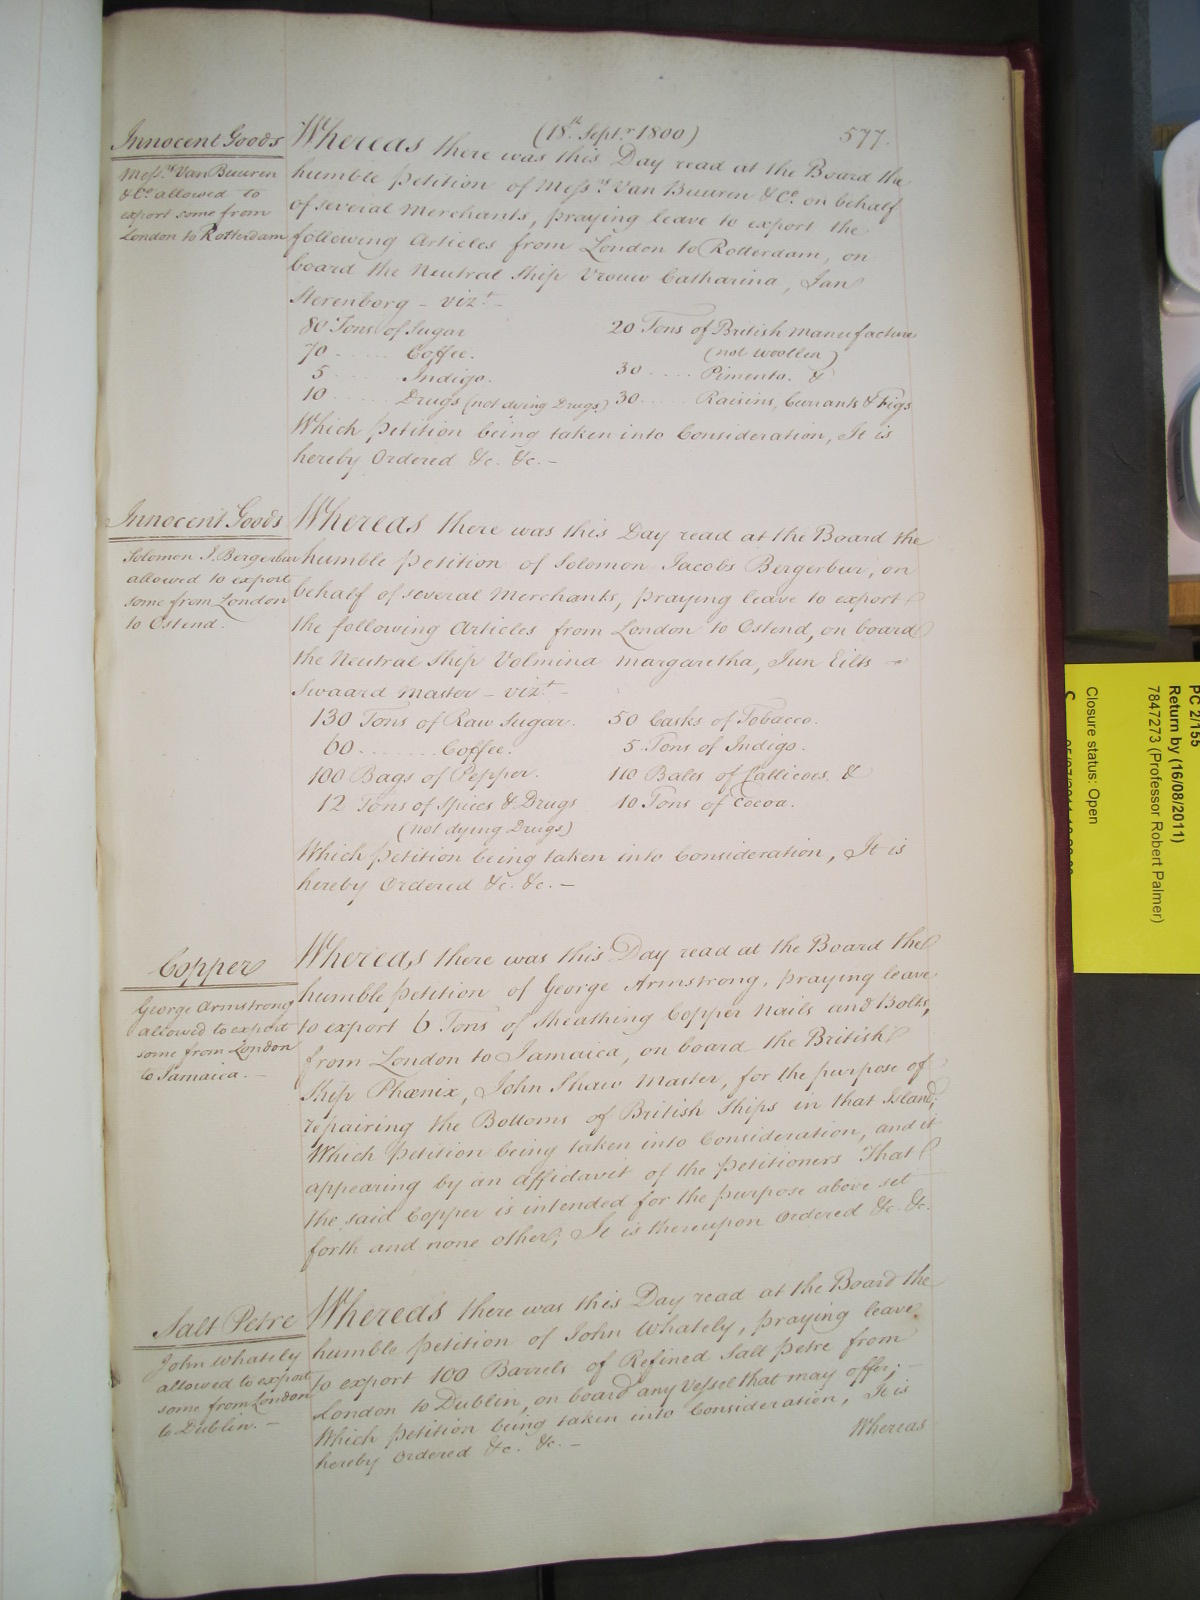 (18th. Septr. 1800)
577.
Innocent Goods
Messrs. Van Buuren
& Co. allowed to
export some from
London to Rotterdam
Whereas there was this Day read at the Board the
humble Petition of Messrs. Van Buuren & Co. on behalf
of several Merchants, praying leave to export the
following Articles from London to Rotterdam, on
board the Neutral Ship Vrouw Catharina, Jan
Sterenborg - vizt. -
80 Tons of Sugar
70 ..... Coffee.
5 ..... Indigo.
10 ..... Drugs (not dying Drugs)
20 Tons of British Manufacture
(not woollen)
30 ..... Pimento. &
30 ..... Raisins, Currants & Figs
Which Petition being taken into Consideration, It is
hereby Ordered &c. &c. -
Innocent Goods
Solomon J. Bergerbur
allowed to export
some from London
to Ostend.
Whereas there was this Day read at the Board the
humble Petition of Solomon Jacobs Bergerbur, on
behalf of several Merchants, praying leave to export
the following Articles from London to Ostend, on board
the Neutral Ship Volmina Margaretha, Jun Eilts -
Swaard Master - vizt. -
130 Tons of Raw Sugar.
60 ....... Coffee.
100 Bags of Pepper.
12 Tons of Spices & Drugs
(not dying Drugs)
50 Casks of Tobacco.
5 Tons of Indigo.
110 Bales of Callicoes. &
10 Tons of Cocoa.
Which Petition being taken into Consideration, It is
hereby Ordered &c. &c. -
Copper
George Armstrong
allowed to export
some from London
to Jamaica. -
Whereas there was this Day read at the Board the
humble Petition of George Armstrong, praying leave
to export 6 Tons of Sheathing Copper Nails and Bolts,
from London to Jamaica, on board the British
Ship Phœnix, John Shaw Master, for the purpose of
repairing the Bottoms of British Ships in that Island;
Which Petition being taken into Consideration, and it
appearing by an affidavit of the Petitioners That
the said Copper is intended for the purpose above set
forth and none other; It is thereupon Ordered &c. &c.
Salt Petre
John Whately
allowed to export
some from London
to Dublin. -
Whereas there was this Day read at the Board the
humble Petition of John Whately, praying leave
to export 100 Barrels of Refined Salt Petre from
London to Dublin, on board any Vessel that may offer; -
Which Petition being taken into Consideration, It is
hereby Ordered &c. &c. -
Whereas
PC 2/155
Return by (16/08/2011)
7847273 (Professor Robert Palmer)
Closure status: Open